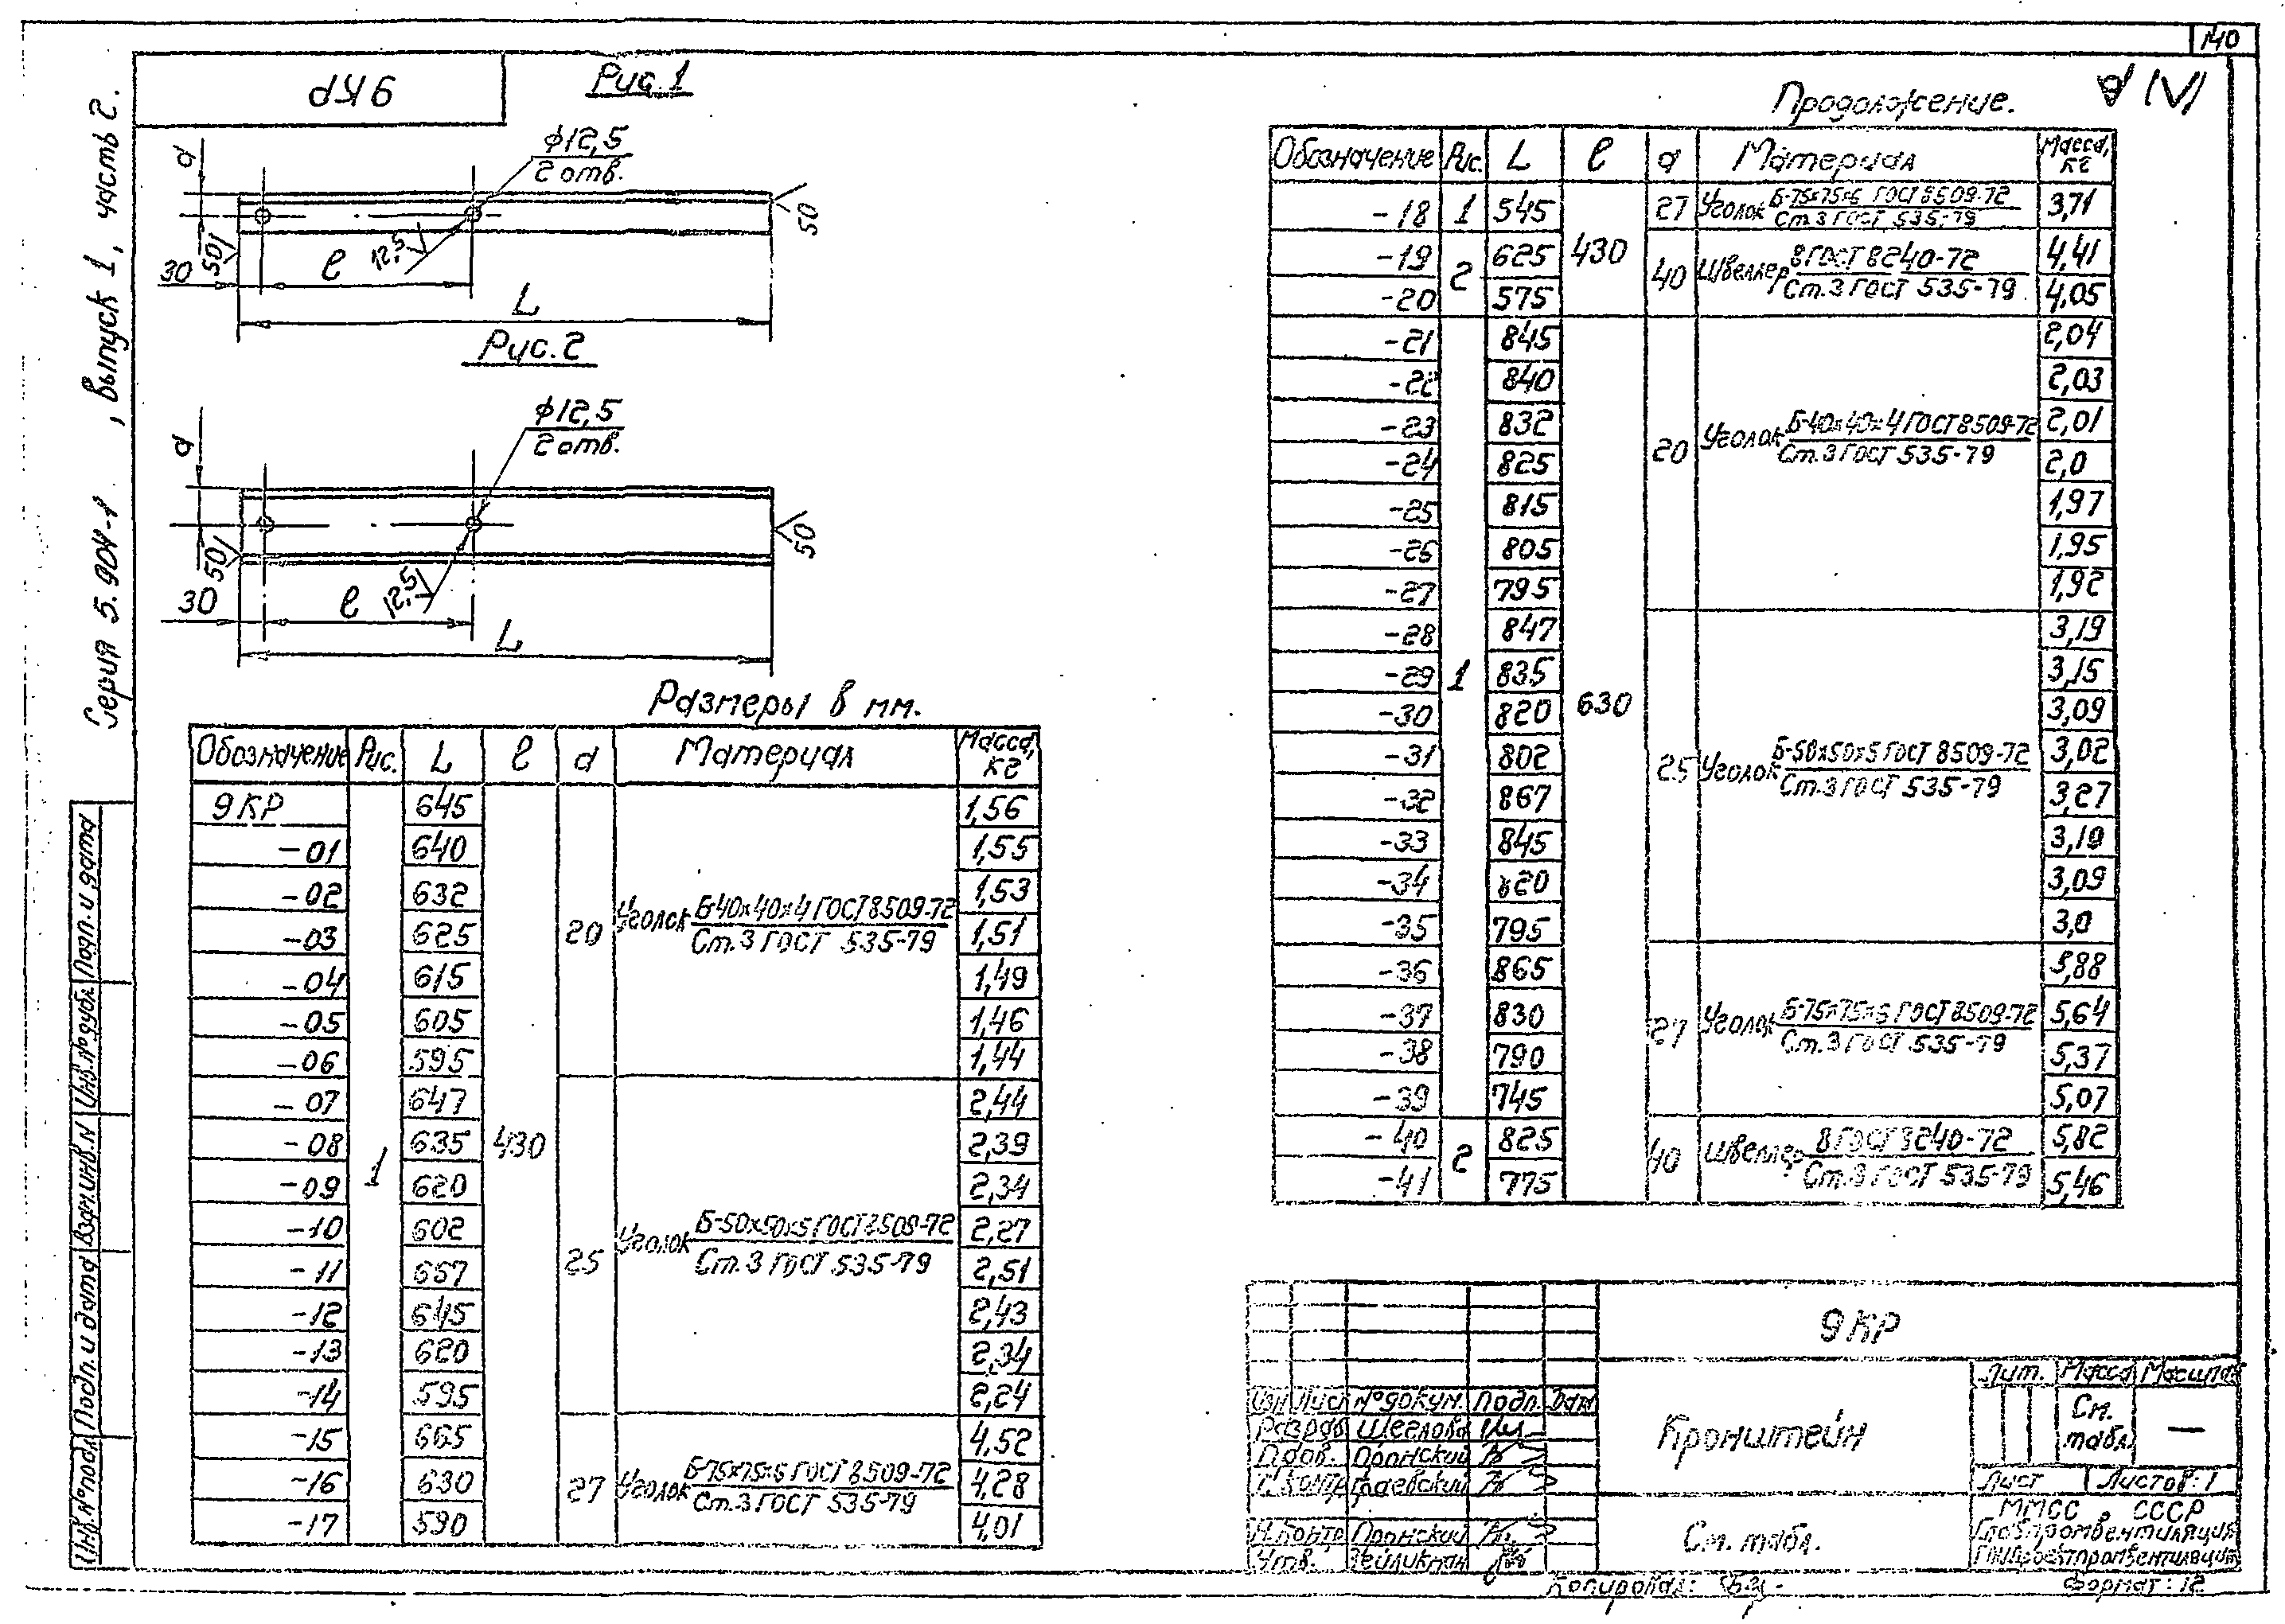 140
9КР
Рис. 1
Серия 5.904-1 , выпуск 1, часть 2.
d
ф12,5
2 отв.
50
50
12,5
30
l
L
Рис. 2
d
ф12,5
2 отв.
50
50
12,5
30
l
L
Размеры в мм.
Обозначение Рис. L l d Материал Масса, кг
9КР 1 645 430 20 Уголок Б-40х40х4 ГОСТ 8509-72 / Ст.3 ГОСТ 535-79 1,56
-01 640 1,55
-02 632 1,53
-03 625 1,51
-04 615 1,49
-05 605 1,46
-06 595 1,44
-07 647 25 Уголок Б-50х50х5 ГОСТ 8509-72 / Ст.3 ГОСТ 535-79 2,44
-08 635 2,39
-09 620 2,34
-10 602 2,27
-11 667 2,51
-12 645 2,43
-13 620 2,34
-14 595 2,24
-15 665 27 Уголок Б-75х75х6 ГОСТ 8509-72 / Ст.3 ГОСТ 535-79 4,52
-16 630 4,28
-17 590 4,01
Продолжение.
Обозначение Рис. L l d Материал Масса, кг
-18 1 545 430 27 Уголок Б-75х75х6 ГОСТ 8509-72 / Ст.3 ГОСТ 535-79 3,71
-19 2 625 40 Швеллер 8 ГОСТ 8240-72 / Ст.3 ГОСТ 535-79 4,41
-20 575 4,05
-21 1 845 630 20 Уголок Б-40х40х4 ГОСТ 8509-72 / Ст.3 ГОСТ 535-79 2,04
-22 840 2,03
-23 832 2,01
-24 825 2,0
-25 815 1,97
-26 805 1,95
-27 795 1,92
-28 847 25 Уголок Б-50х50х5 ГОСТ 8509-72 / Ст.3 ГОСТ 535-79 3,19
-29 835 3,15
-30 820 3,09
-31 802 3,02
-32 867 3,27
-33 845 3,19
-34 820 3,09
-35 795 3,0
-36 865 27 Уголок Б-75х75х6 ГОСТ 8509-72 / Ст.3 ГОСТ 535-79 5,88
-37 830 5,64
-38 790 5,37
-39 745 5,07
-40 2 825 40 Швеллер 8 ГОСТ 8240-72 / Ст.3 ГОСТ 535-79 5,82
-41 775 5,46
Инв.№подл. Подп. и дата Взам.инв.№ Инв.№дубл. Подп. и дата
9КР
Изм Лист №докум. Подп. Дата
Разраб Щеглова
Пров. Пронский
Т.контр Граевский
Н.контр Пронский
Утв. Зейликман
Кронштейн
См. табл.
Лит. Масса Масштаб
См. табл. —
Лист Листов: 1
ММСС СССР
Главпромвентиляция
ГПИПроектпромвентиляция
Копировал: Формат: 12